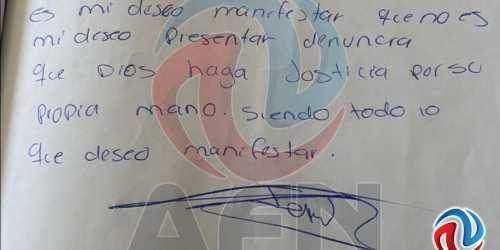 es mi deseo manifestar que no es
mi deseo Presentar denuncia
que DIOS haga Justicia por su
propia mano. siendo todo lo
que deseo manifestar.
AFN